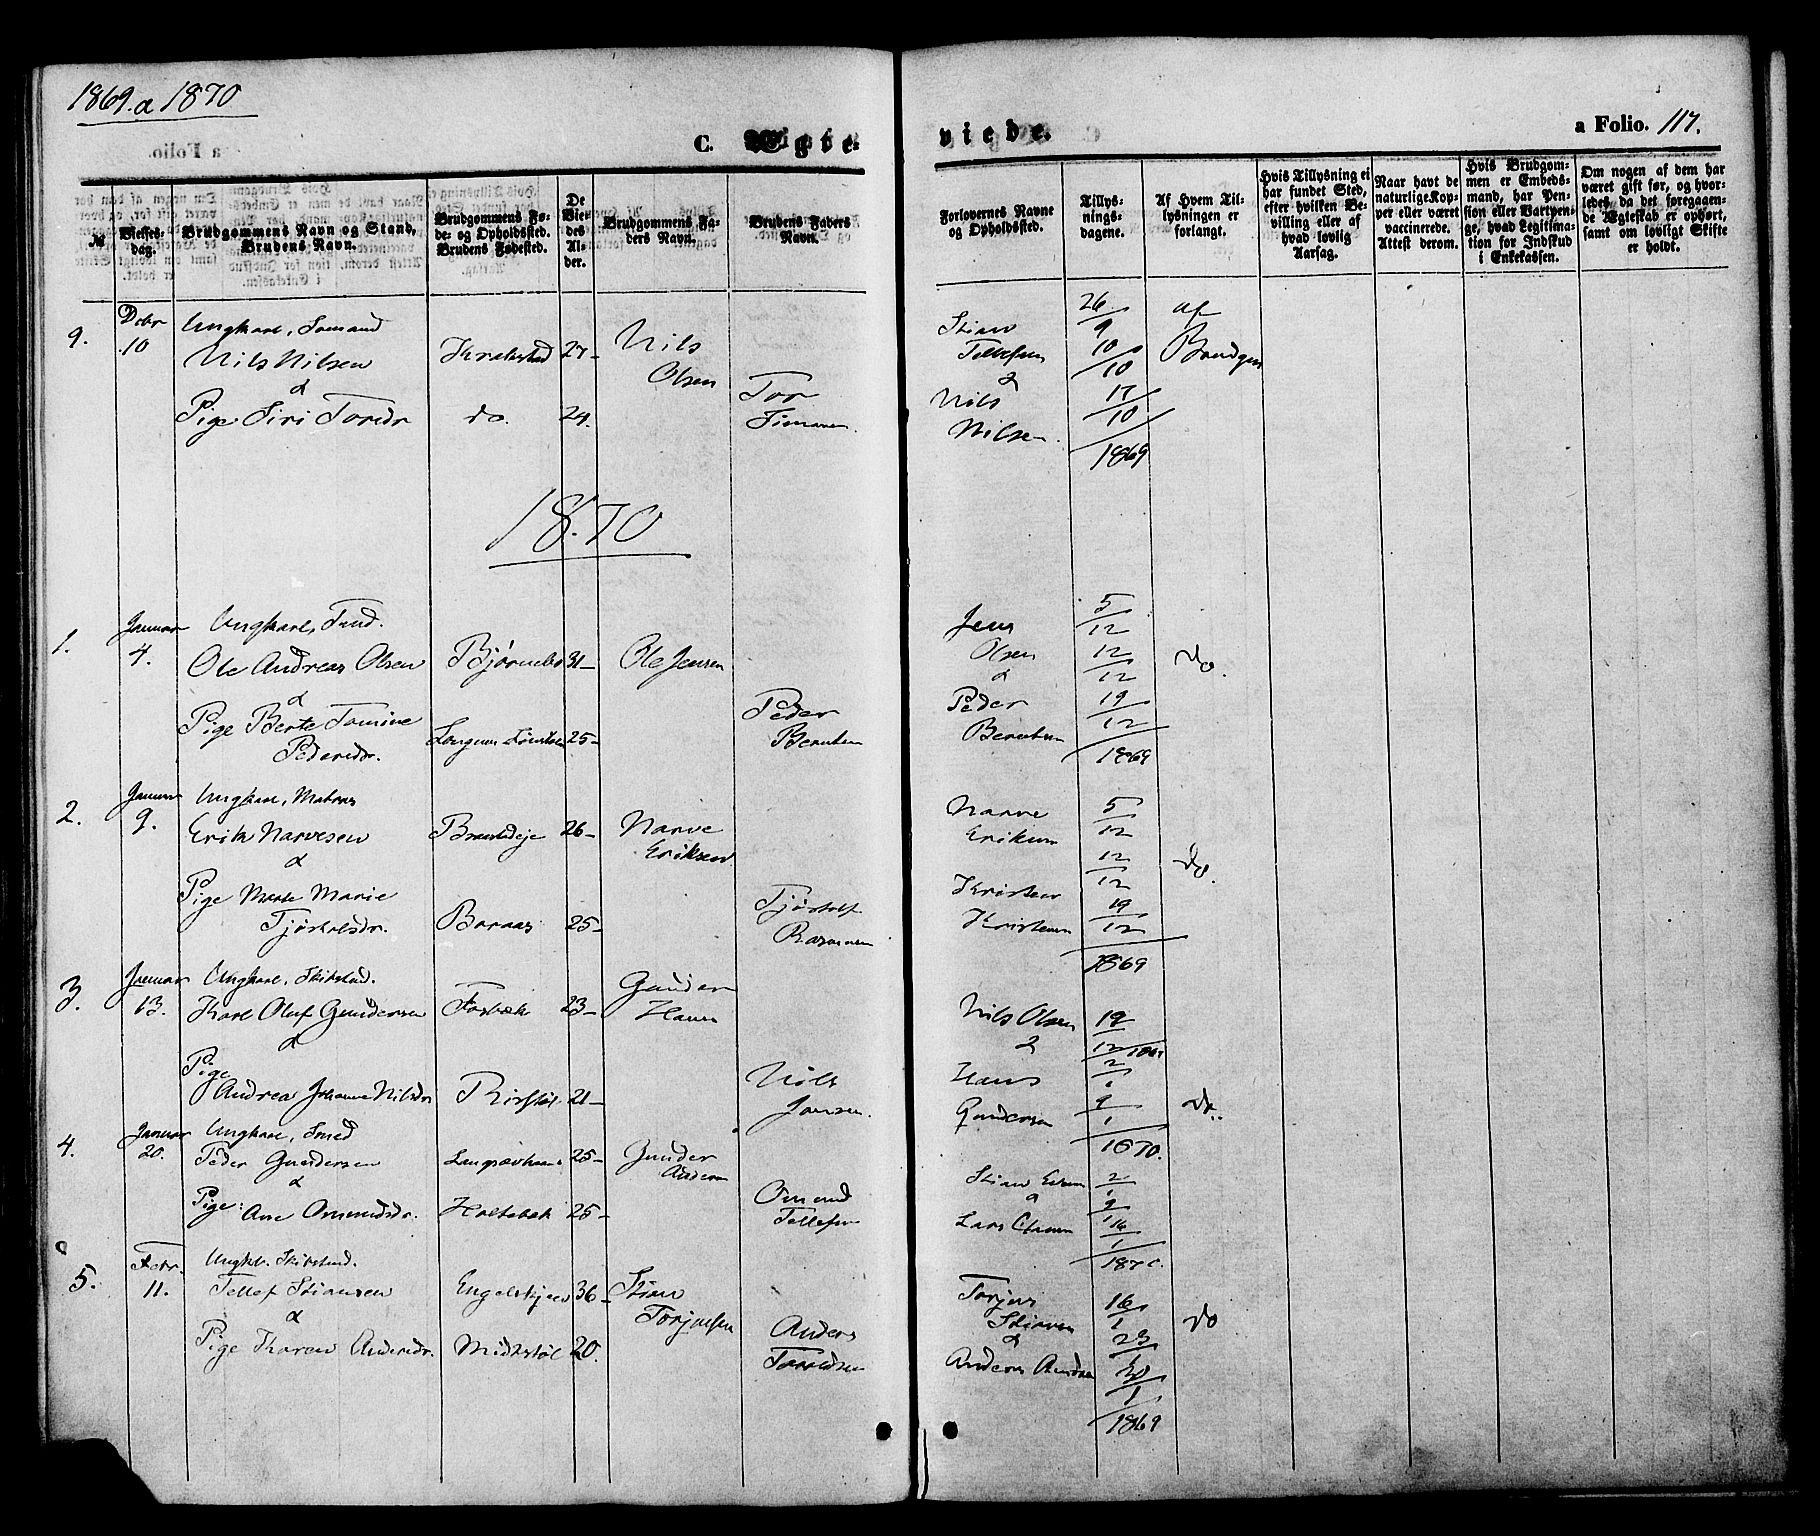 1869. a 1870
C. Ægte-
viede.
a Folio. 117.
№
Vielses-
dag.
Brudgommens Navn og Stand,
Brudens Navn.
Brudgommens Fø-
de- og Opholdssted.
Brudens Fødested.
De
Vier-
des
Al-
der.
Brudgommens Fa-
ders Navn.
Brudens Faders
Navn.
Forlovernes Navne
og Opholdssted.
Tillys-
nings-
dagene.
Af Hvem Til-
lysningen er
forlangt.
Hvis Tillysning ei
har fundet Sted,
efter hvilken Be-
villing eller af
hvad lovlig
Aarsag.
Naar havt de
naturlige Kop-
per eller været
vaccinerede.
Attest derom.
Hvis Brudgom-
men er Embeds-
mand, har Pen-
sion eller Vartpen-
ge, hvad Legitima-
tion for Indskud
i Enkekassen.
Om nogen af dem har
været gift før, og hvor-
ledes, da det foregaaen-
de Ægteskab er ophørt,
samt om lovligt Skifte
er holdt.
9.
Debr
10
Ungkarl, Sømand
Nils Nilsen
&
Pige Siri Torsdr
do.
27-
24.
Nils
Olsen
Tor
Simonsen.
Stian
Tellefsen
&
Nils
Nilsen.
26/9
10/10
17/10
1869
af
Brudgm
1870
1.
Januar
4.
Ungkarl,
Ole Andreas Olsen
&
Pige Berte Tomine
Pedersdr.
Bjørnebo
31-
25-
Ole Jensen
Peder
Berntsen
Jens
Olsen
&
Peder
Berntsen
5/12
12/12
19/12
1869
do.
2.
Januar
9.
Ungkarl, Matros
Erik Narvesen
&
Pige Marte Marie
Tjøstolsdr.
26-
Boraas
25-
Narve
Eriksen
Tjøstolf
Rasmusen
Narve
Eriksen
Kristen
Kristensen
5/12
12/12
19/12
1869
do.
3.
Januar
13.
Ungkarl, Skibstmd.
Karl Oluf Gundersen
&
Pige
Andrea Johanne Nilsdr
Fosbæk
23-
Ribstøl
21-
Gunder
Hansen
Nils
Jansen.
Nils Olsen
&
Hans
Gundersen
19/12 1869
2/1
9/1
1870.
do.
4.
Januar
20.
Ungkarl, Smed
Peder Gundersen
&
Pige: Ane Omundsdr.
25-
Holtebæk
25-
Gunder
Andersen
Omund
Tellefsen
2/1
9/1
16/1
1870.
5.
Febr.
11.
Ungkr. Skibstmd.
Tellef Stiansen
&
Pige Karen Andersdr.
Engelskjøn
36-
Midtstøl
20.
Stian
Torjusen
Anders
Taraldsen
Torjus
Stiansen
&
16/1
23/1
30/1
1869
do